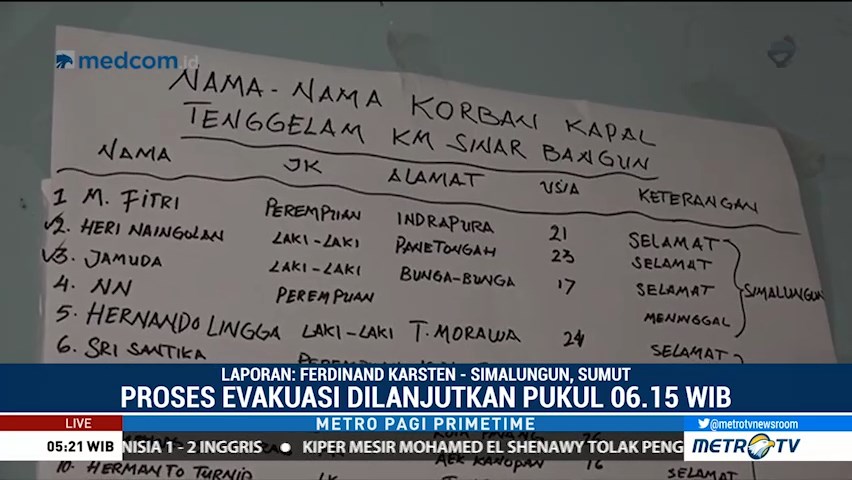 medcom.id
NAMA-NAMA KORBAN KAPAL
TENGGELAM KM SINAR BANGUN
NAMA JK ALAMAT USIA KETERANGAN
1 M. FITRI PEREMPUAN INDRAPURA 21 SELAMAT
2. HERI NAINGOLAN LAKI-LAKI PANETONGAH 23 SELAMAT
3. JAMUDA LAKI-LAKI BUNGA-BUNGA 17 SELAMAT
SIMALUNGUN
4. NN PEREMPUAN MENINGGAL
5. HERNANDO LINGGA LAKI-LAKI T. MORAWA 24 SELAMAT
6. SRI SANTIKA
LAPORAN: FERDINAND KARSTEN - SIMALUNGUN, SUMUT
PROSES EVAKUASI DILANJUTKAN PUKUL 06.15 WIB
LIVE METRO PAGI PRIMETIME @metrotvnewsroom
05:21 WIB NISIA 1 - 2 INGGRIS ● KIPER MESIR MOHAMED EL SHENAWY TOLAK PENG METRO TV
AEK KANOPAN 16
10. HERMANTO TURNIP LK SELAMAT